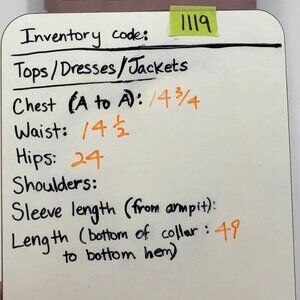 Inventory code: 1119
Tops/Dresses/Jackets
Chest (A to A): 14 3/4
Waist: 14 1/2
Hips: 24
Shoulders:
Sleeve length (from armpit):
Length (bottom of collar : 49
to bottom hem)